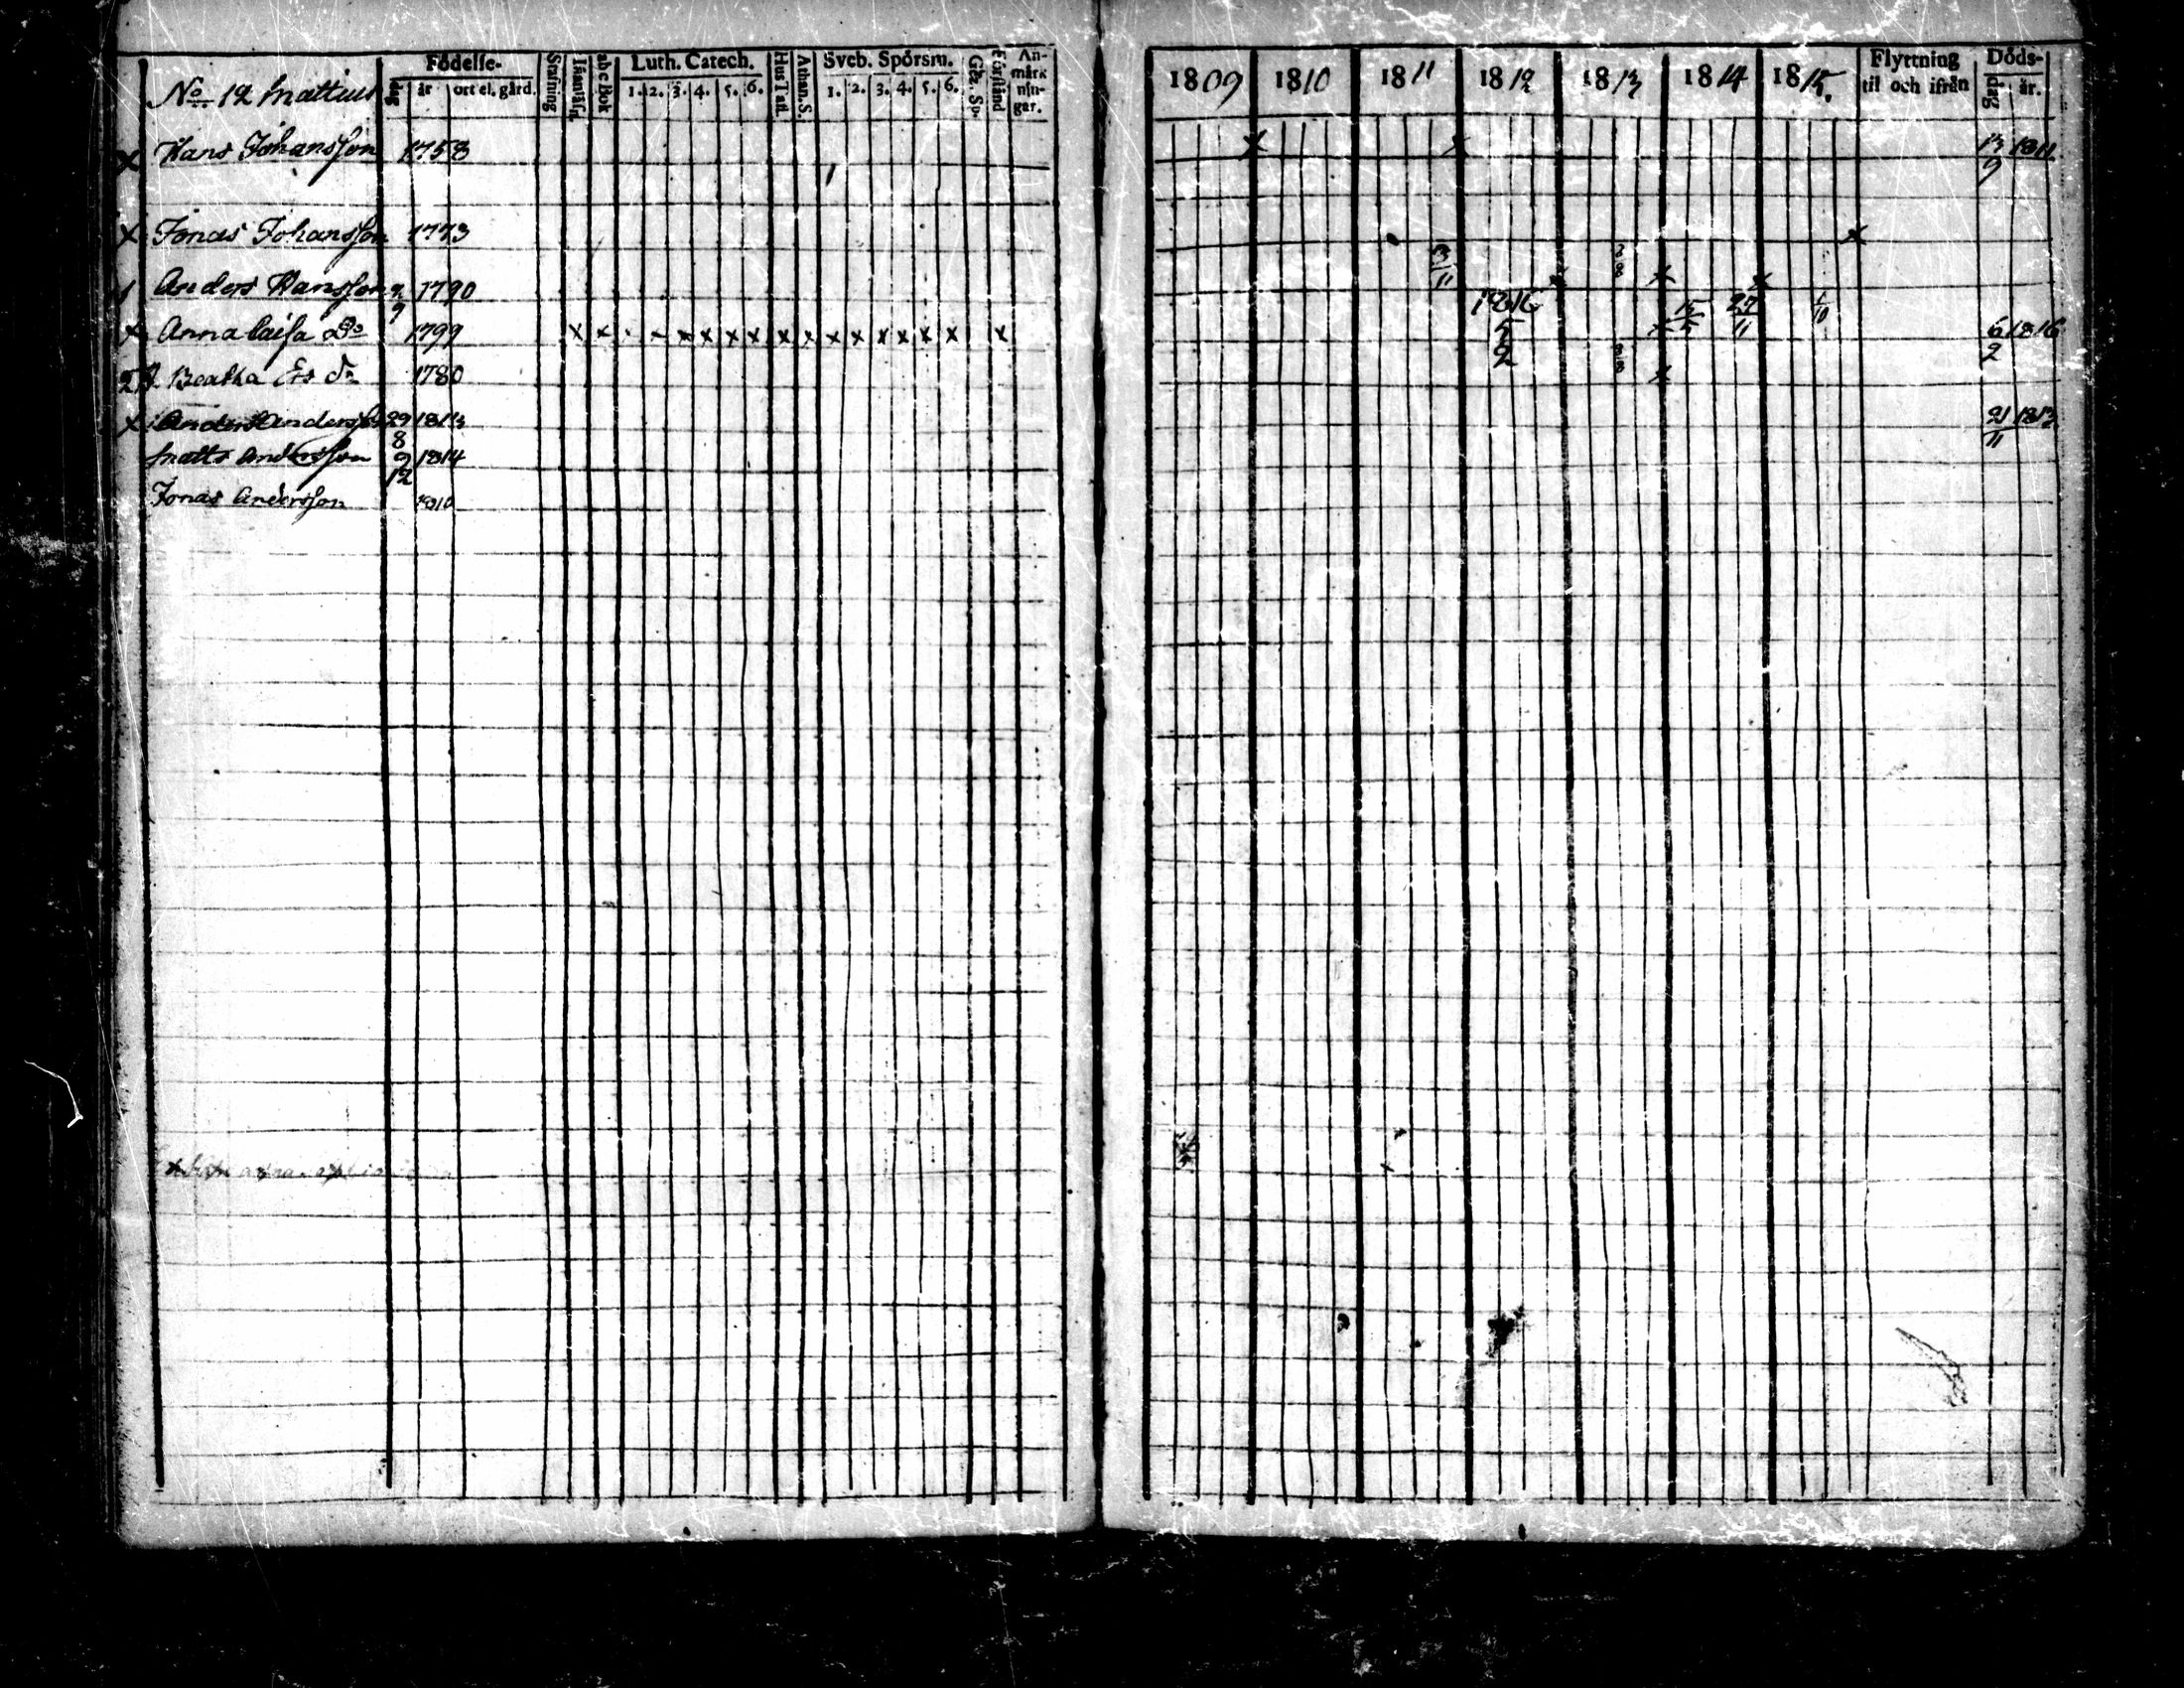 Födelse-
Stafning
abc Bok
Luth. Catech.
Hus Tafl.
Athan. S.
Sveb. Spörsm.
Förstånd
An-
märk
nin-
gar.
No 12 Mattius
dag
år
ort el. gård.
1. 2. 3. 4. 5. 6.
1. 2. 3. 4. 5. 6.
x Hans Johansson 1758
x Jonas Johansson 1773
Anders Hansson 1790
9
x Anna Caisa Do 1799 x x x x x x x x x x x x x x x
Beatha Ers dr 1780
x Anders Andersson 29 1813
8
Matts Andersson 9 1814
12
Jonas Andersson 1810
1809 1810 1811 1812 1813 1814 1815.
Flyttning
til och ifrån
Döds-
dag
år.
x x 13 1811
9
x
3
11
x x x
1816
5
2
x
15
5
27
11
1
10
6 1816
2
x
21 1813
11